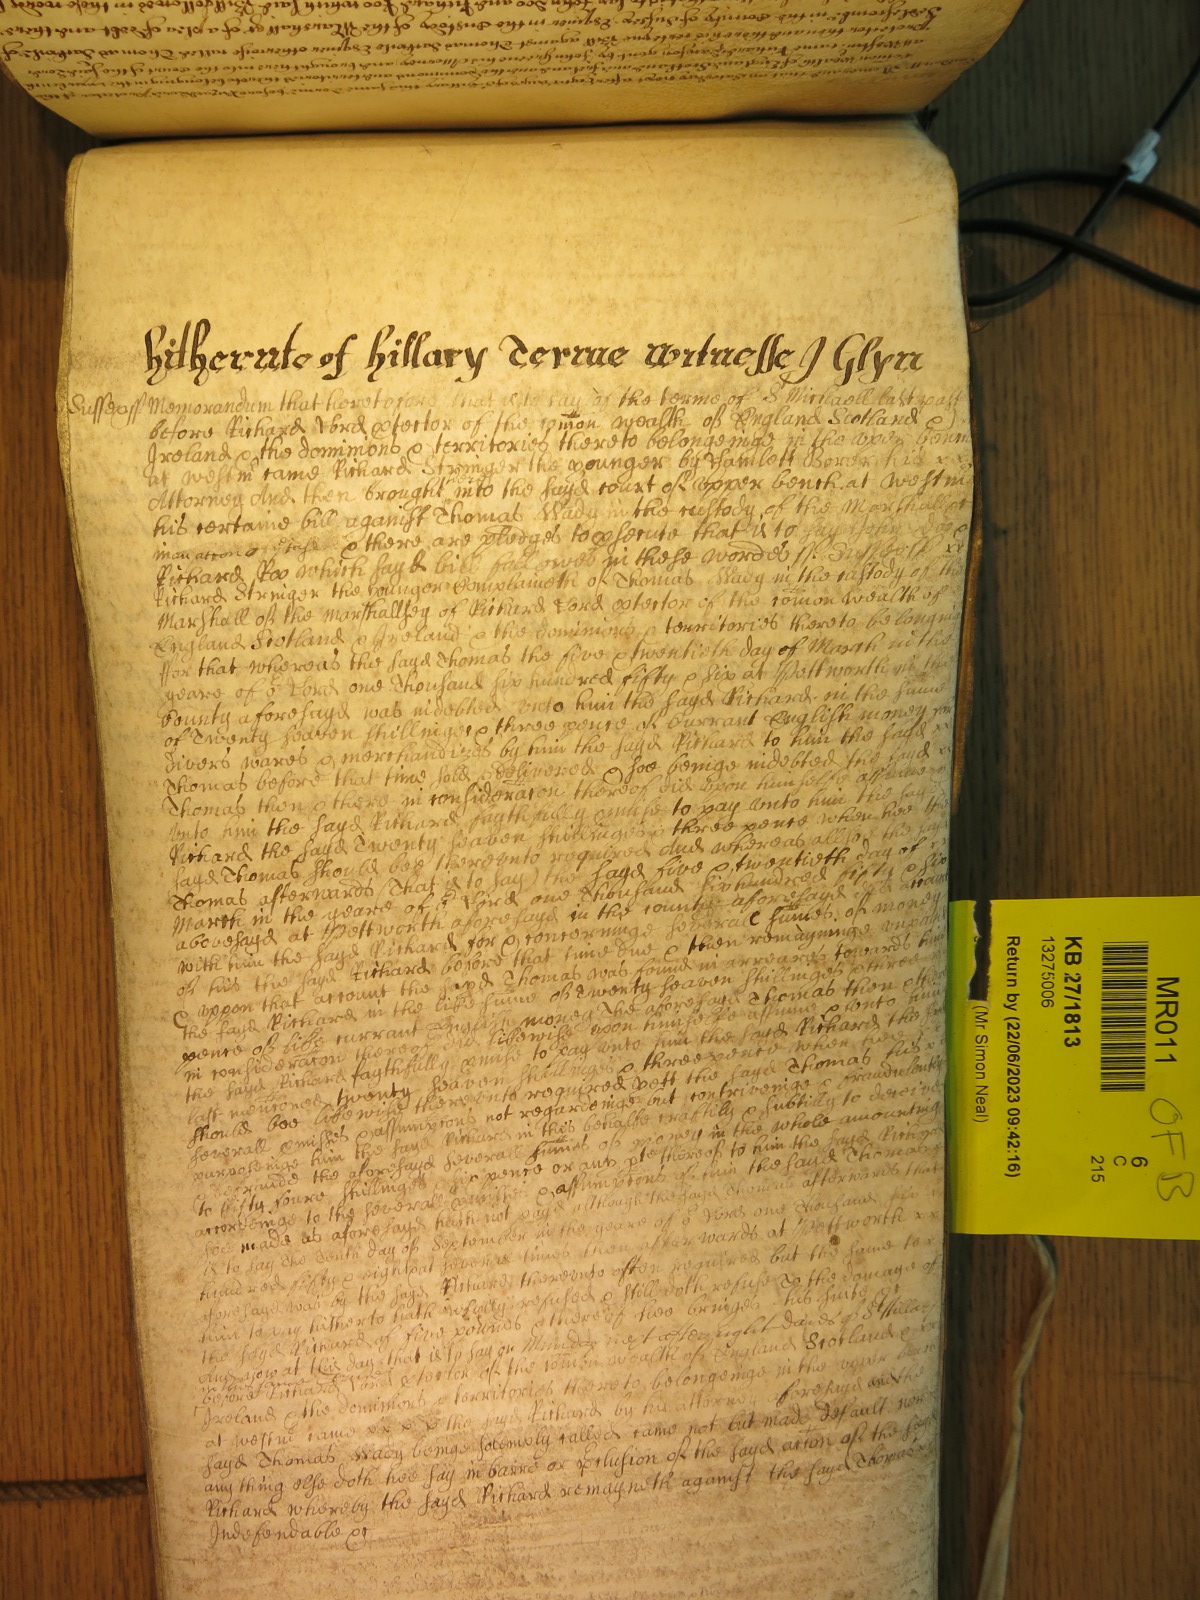 hitherunto of Hillary Terme witnesse J Glyn
Sussex ss Memorandum that heretofore that is to say of the terme of St Michaell last past
before Richard Lord ptector of the comon wealth of England Scotland &
Ireland & the dominions & territories thereto belonginge in the vper benn
at westm came Richard Stringer the younger by Hamlett Borer his x x
Attorney And then brought into the sayd court of vpper bench at westm
his certaine bill against Thomas Wady in the custody of the Marshall &c
in an accon & there are pledges to psecute that is to say John Doo &
Richard Roo which sayd bill followes in these wordes ss. Sussex ss xx
Richard Stringer the younger Complaineth of Thomas Wady in the custody of the
Marshall of the marshallsey of Richard Lord ptector of the comon wealth of
England Scotland & Ireland & the dominions & territories thereto belonging
ffor that whereas the sayd Thomas the five & twentieth day of March in the
yeare of or Lord one Thousand six hundred fifty & six at Pettworth in the
County aforesayd was indebted vnto him the sayd Richard in the summe
of Twenty seaven shillinges & three pence of Currant English money for
divers wares & merchandizes by him the sayd Richard to him the sayd xx
Thomas before that time sold & delivered & hee beinge indebted the sayd
Thomas then & there in consideracon thereof did vpon himselfe assume &
vnto him the sayd Richard faythfully pmise to pay vnto him the sayd
Richard the sayd Twenty seaven shillinges & three pence when hee the
sayd Thomas should bee therevnto required And whereas allsoe the sayd
Thomas afterwards (That is to say) the sayd five & twentieth day of x x
March in the yeare of or Lord one Thousand sixhundred fifty & six
abovesayd at Pettworth aforesayd in the county aforesayd did account
with him the sayd Richard for & concerninge severall summes of money
of his the sayd Richard before that time due & then remayninge vnpayd
& vppon that account the sayd Thomas was found in arreares towards him
the sayd Richard in the like summe of Twenty seaven shillinges & three
pence of like currant English money The aforesayd Thomas then & there
in consideracon thereof did likewise vpon himselfe assume & vnto him
the sayd Richard faythfully pmise to pay vnto him the sayd Richard the sayd
last mentioned twenty seaven shillinges & three pence when hee
should bee likewise therevnto required Yett the sayd Thomas his x x
severall pmises & assumptions not regardinge but contriveinge & fraudulently
purposeinge him the sayd Richard in this behalfe craftily & subtilly to deceive
& defraude the aforesayd severall summes of money in the whole amounting
to fifty foure shillinges & six pence or any pte thereof to him the sayd Richard
accordinge to the severall pmises & assumptions of him the sayd Thomas
soe made as aforesayd hath not payd although the sayd Thomas afterwards that
is to say the tenth day of September in the yeare of or Lord one thousand six
hundred fifty & eight at severall times then afterwards at Pettworth x x
aforesayd was by the sayd Richard therevnto often required but the same to x
him to pay hitherto hath wholly refused & still doth refuse To the damage of
the sayd Richard of five pounds & thereof hee bringes his suite &c
And now at this day that is to say on Munday next after eight dayes of St Hillary
in this same terme
before Richard Lord ptector of the comon wealth of England Scotland &
Ireland & the dominions & territories thereto belonginge in the vpper bench
at westm came x x x the sayd Richard by his attorney aforesayd And the
sayd Thomas Wady beinge solemply called came not but made default nor
any thing else doth hee say in barre or pclusion of the sayd accon of the sayd
Richard whereby the sayd Richard remayneth against the sayd Thomas
Indefendable &c
MR011
6
C
215
KB 27/1813
13275006
(Mr Simon Neal)
Return by (22/06/2023 09:42:16)
OFB